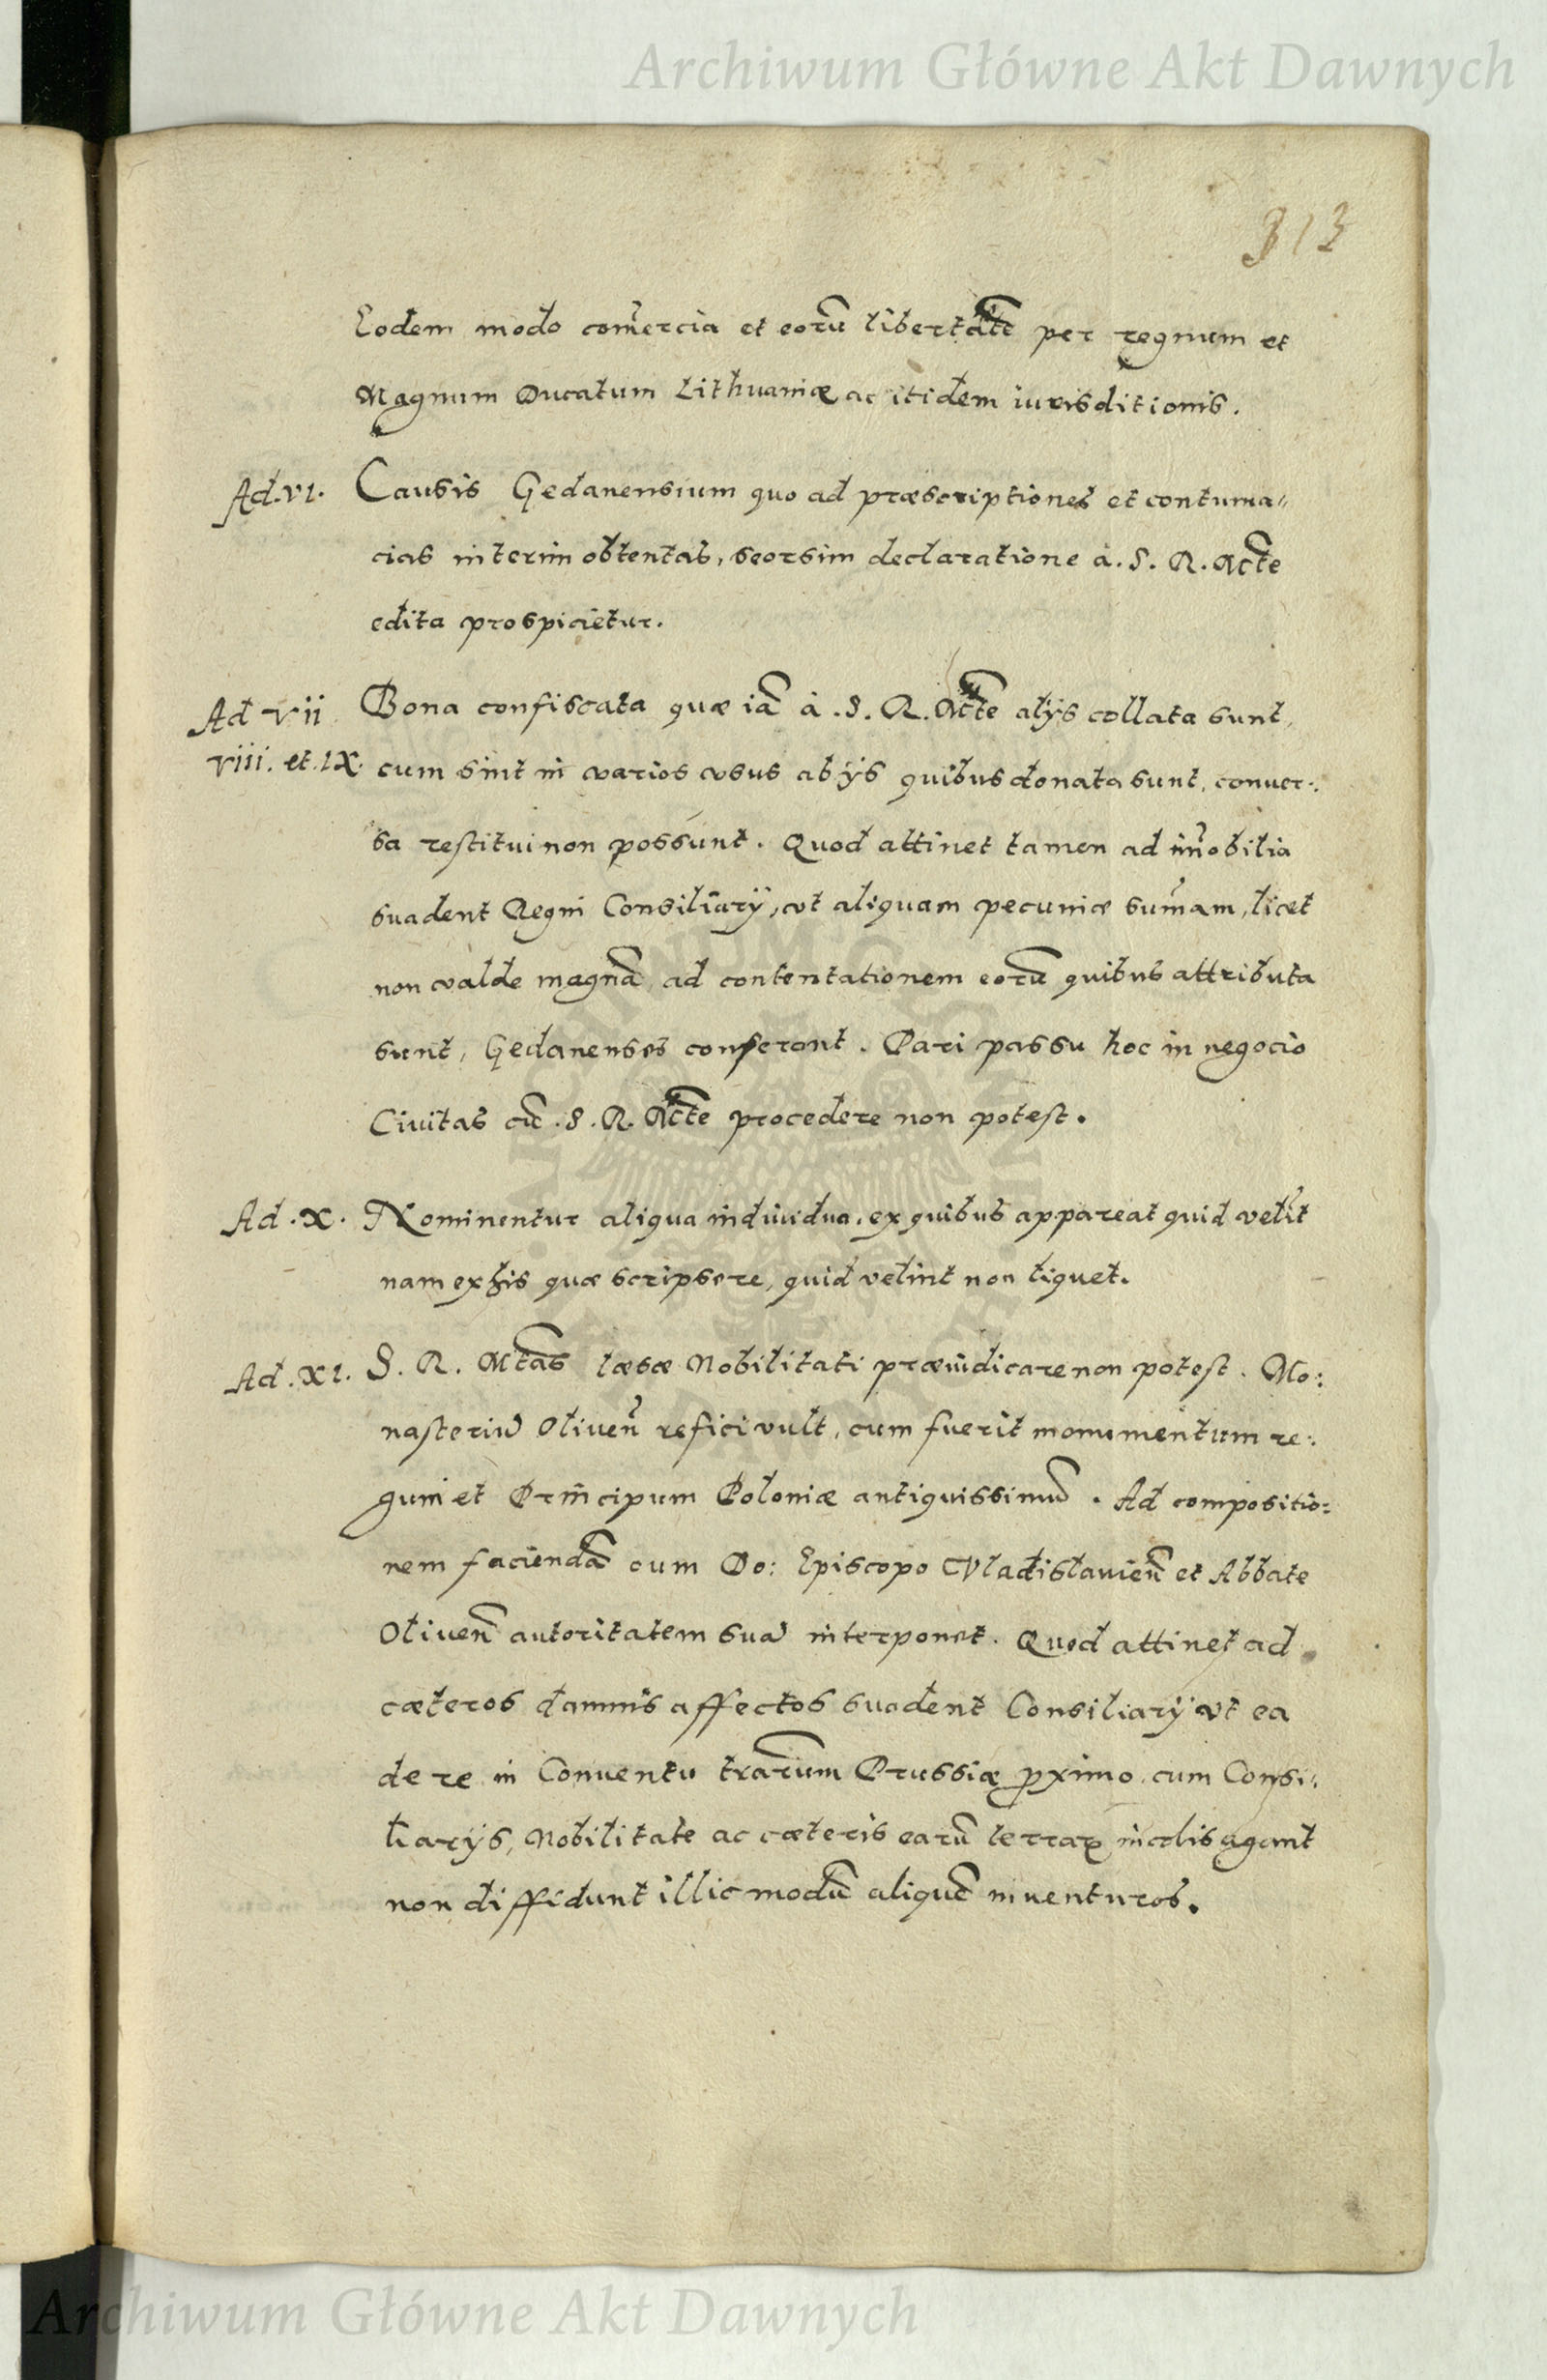 Archiwum Główne Akt Dawnych
313
Eodem modo com̃ercia et eorũ libertatẽ per regnum et
Magnum Ducatum Lithuaniæ ac itidem iurisditionis.
Ad. VI. Causis Gedanensium quo ad præscriptiones et contuma„
cias interim obtentas, seorsim declaratione à. S. R. Mtẽ
edita prospicietur.
Ad VII Bona confiscata quæ iã à .S. R. Mtẽ alijs collata sunt,
VIII. et. IX. cum sint in varios vsus ab ijs quibus donata sunt, conuer:
sa restitui non possunt. Quod attinet tamen ad im̃obilia
suadent Regni Consiliarij, vt aliquam pecuniæ sum̃am, licet
non valde magnã, ad contentationem eorũ quibus attributa
sunt, Gedanenses conferant. Pari passu hoc in negocio
Ciuitas cũ .S. R. Mtẽ procedere non potest.
Ad .X. Nominentur aliqua indiuidua, ex quibus appareat quid velit
nam ex his quæ scripsere, quid velint non liquet.
Ad .XI. S. R. Mtãs læsæ Nobilitati præiudicare non potest. Mo:
nasteriũ Oliueñ refici vult, cum fuerit monumentum re:
gum et Principum Poloniæ antiquissimũ. Ad compositio:
nem faciendã cum Do: Episcopo Vladislauieñ et Abbate
Oliueñ autoritatem suã interponet. Quod attinet ad
cæteros damnis affectos suadent Consiliarij vt ea
de re in Conuentu trãrum Prussiæ ꝓximo, cum Consi:
liarijs, Nobilitate ac cæteris earũ terraꝝ incolis agant
non diffidunt illic modũ aliquẽ inuenturos.
Archiwum Główne Akt Dawnych